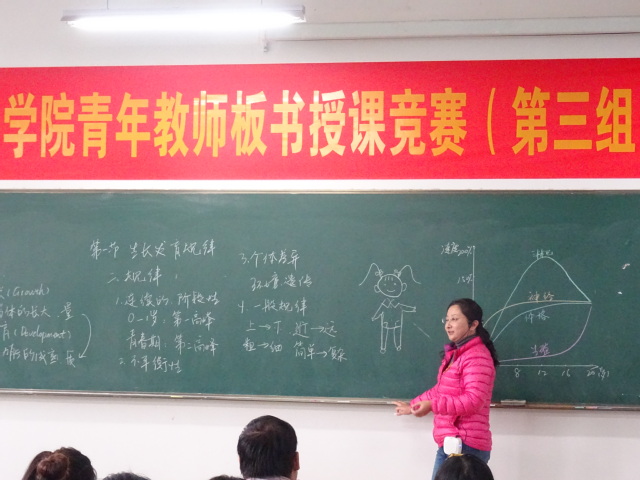 学院青年教师板书授课竞赛（第三组
第一节 生长发育规律
二、规律：
1.连续的 阶段性
0-1岁，第一高峰
青春期，第二高峰
2.不平衡性
(Growth)
体的长大 量
(Development)
3.个体差异
环境 遗传
4.一般规律
上→下 近→远
粗→细 简单→复杂
速度
200%
神经
体格
生殖
8 12 16 20